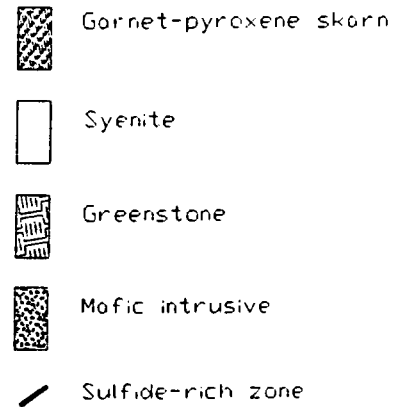 Garnet-pyroxene skarn
Syenite
Greenstone
Mafic intrusive
Sulfide-rich zone